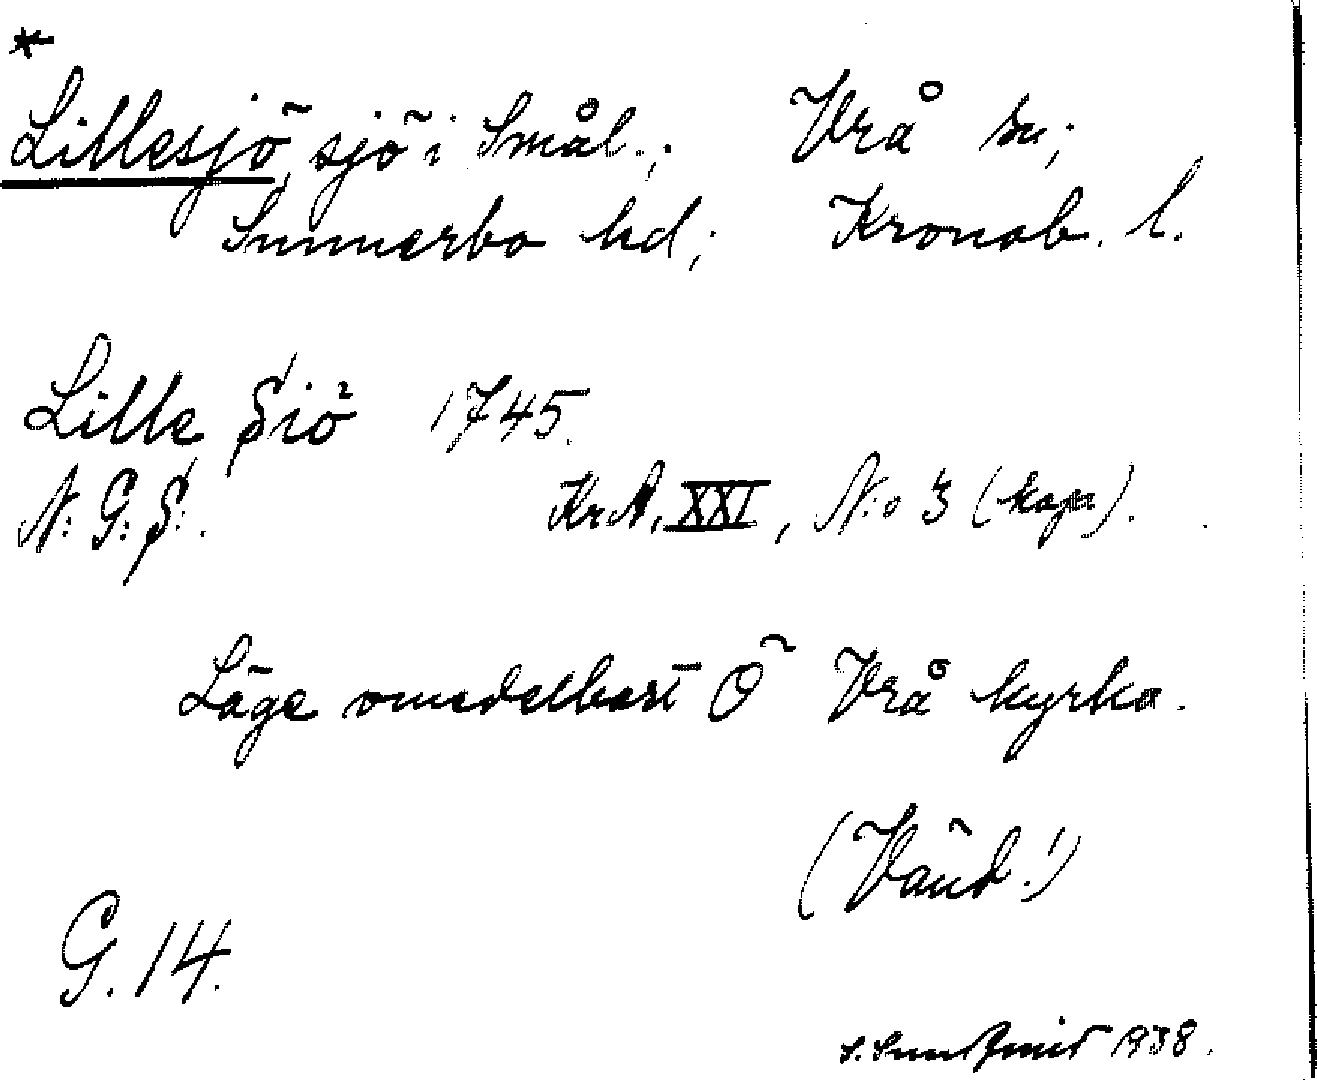 *
Lillesjö, sjö i Smål.; Vrå sn;
Sunnerbo hd; Kronob. l.
Lille Siö 1745.
N: G: S: .
KrA, XXI, N:o 3 (kopi).
Läge omedelbart Ö Vrå kyrka.
(Vänd!)
G. 14.
1938.